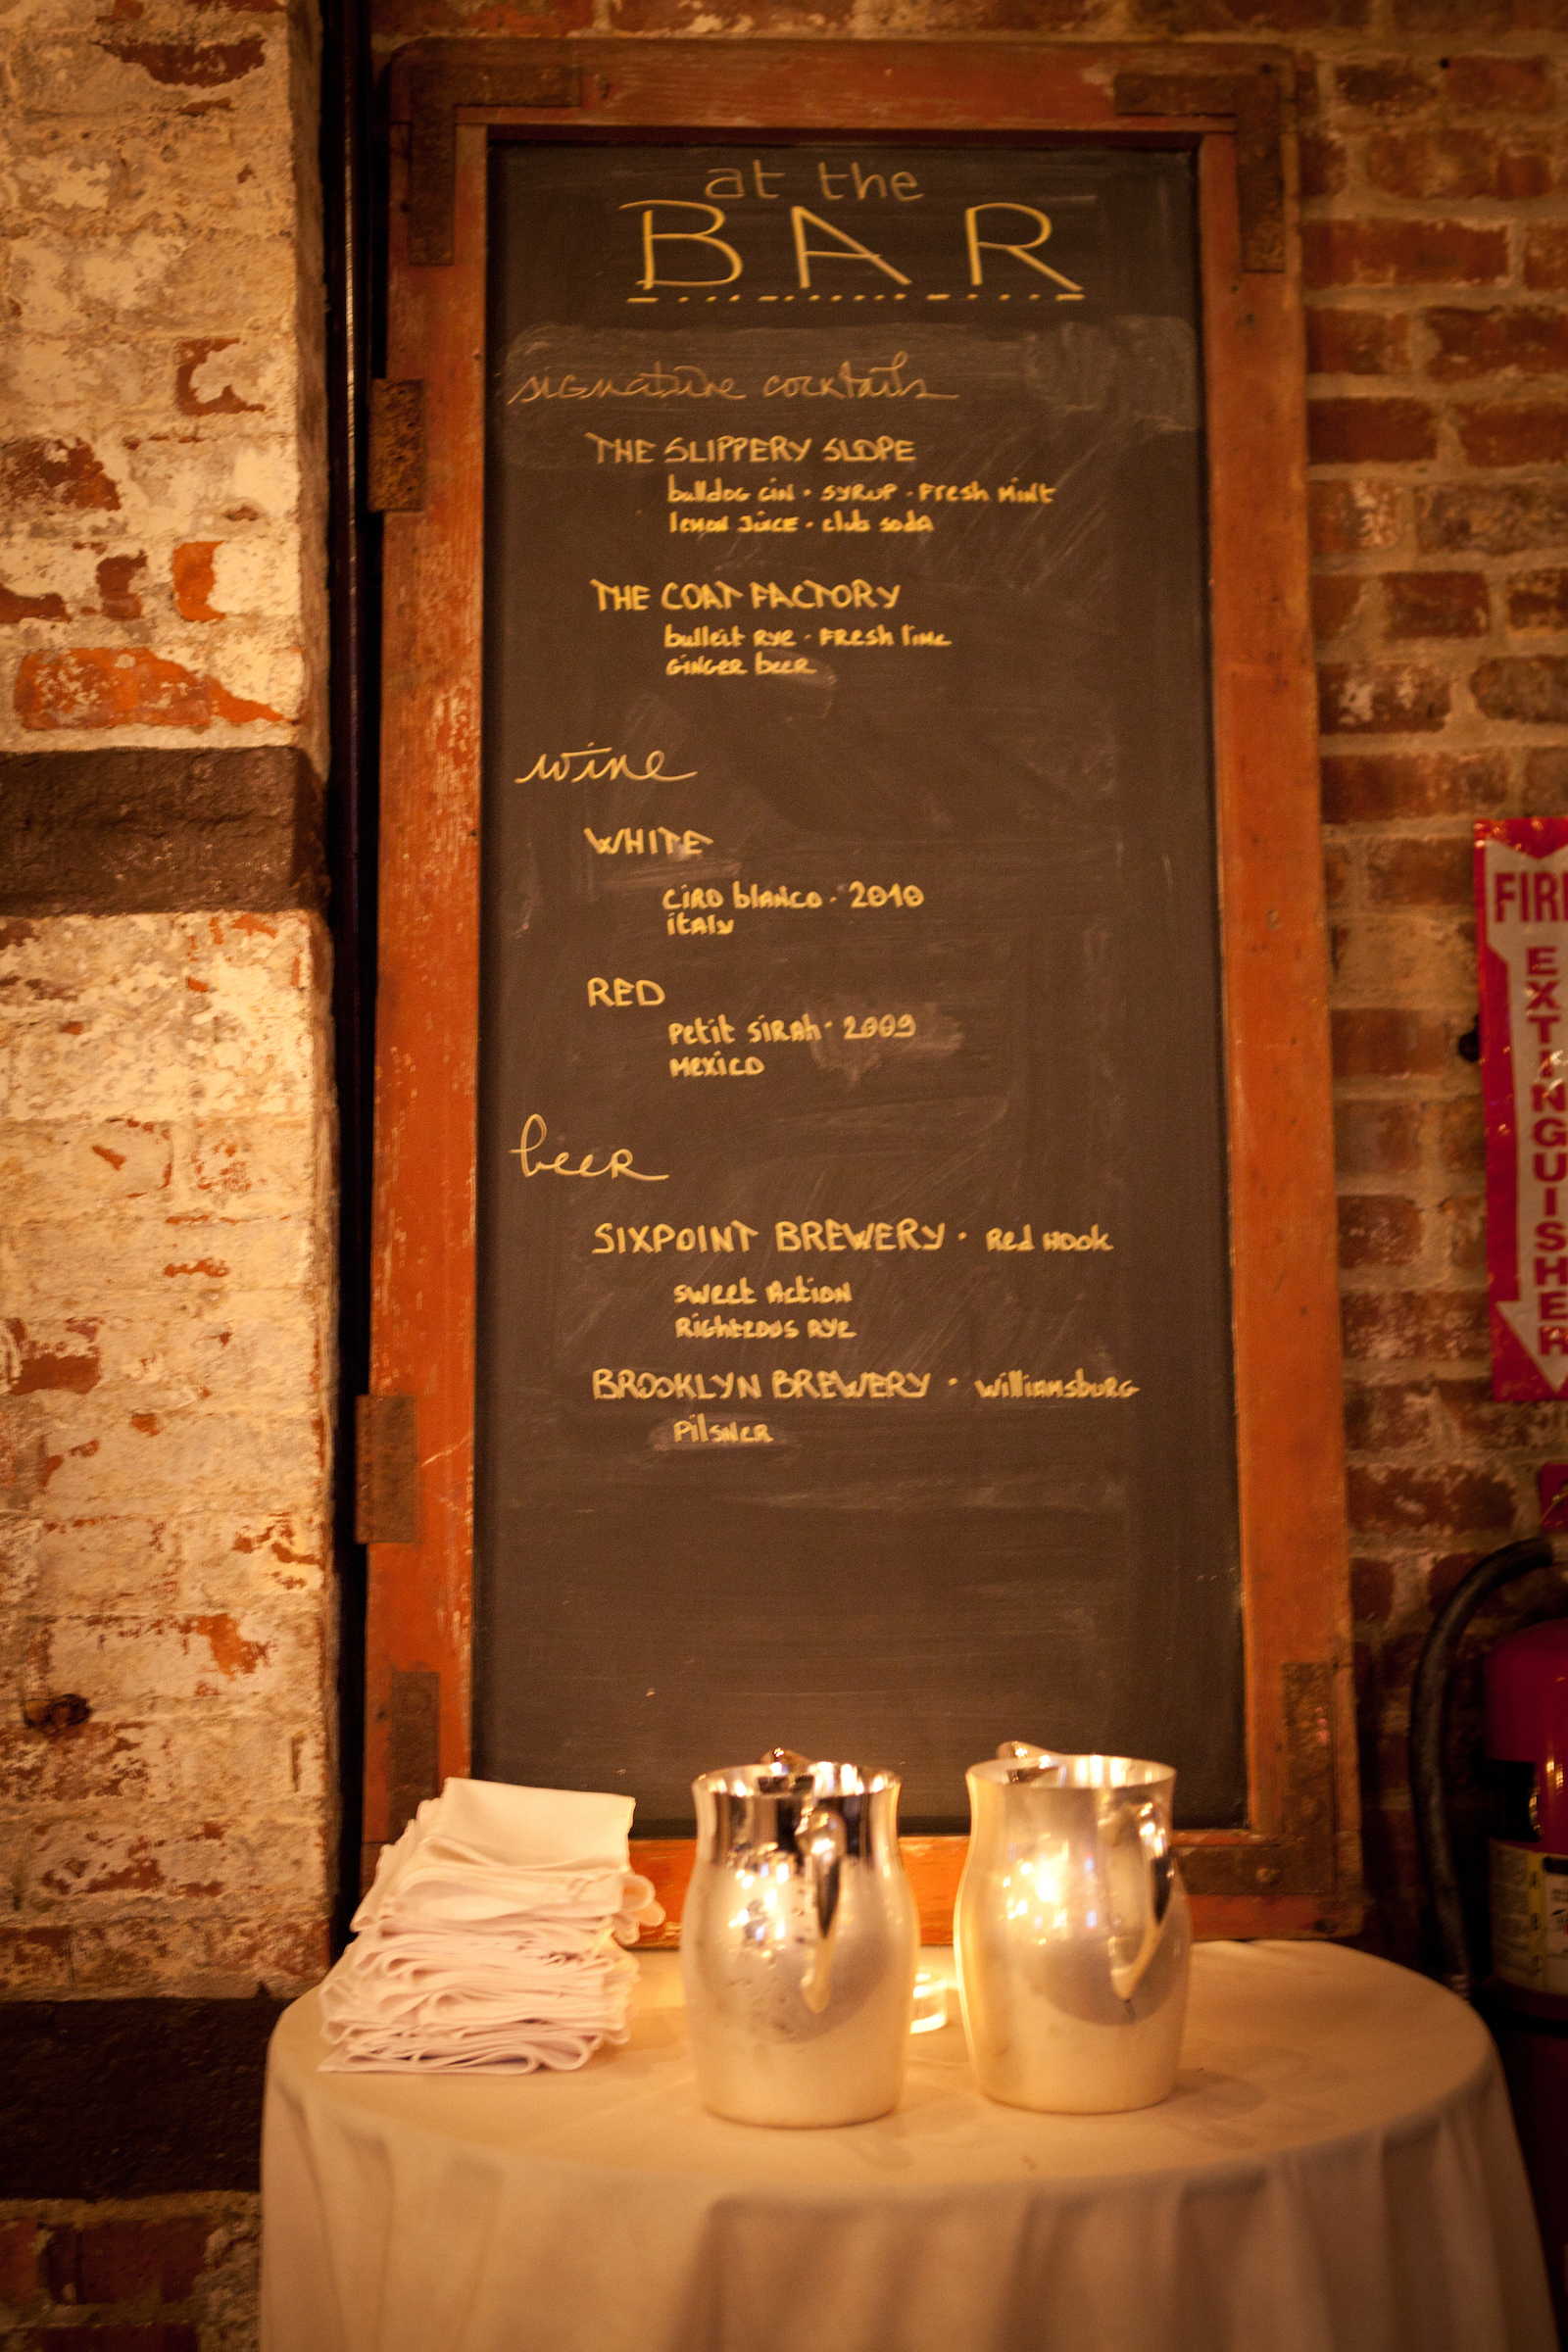 at the
BAR
signature cocktails
THE SLIPPERY SLOPE
bulldog gin · syrup · fresh mint
lemon juice · club soda
THE COAT FACTORY
bulleit rye · fresh lime
ginger beer
wine
WHITE
ciro blanco · 2010
italy
RED
petit sirah · 2009
mexico
beer
SIXPOINT BREWERY · Red Hook
sweet action
Righteous Rye
BROOKLYN BREWERY · williamsburg
Pilsner
FIRE
EXTINGUISHER